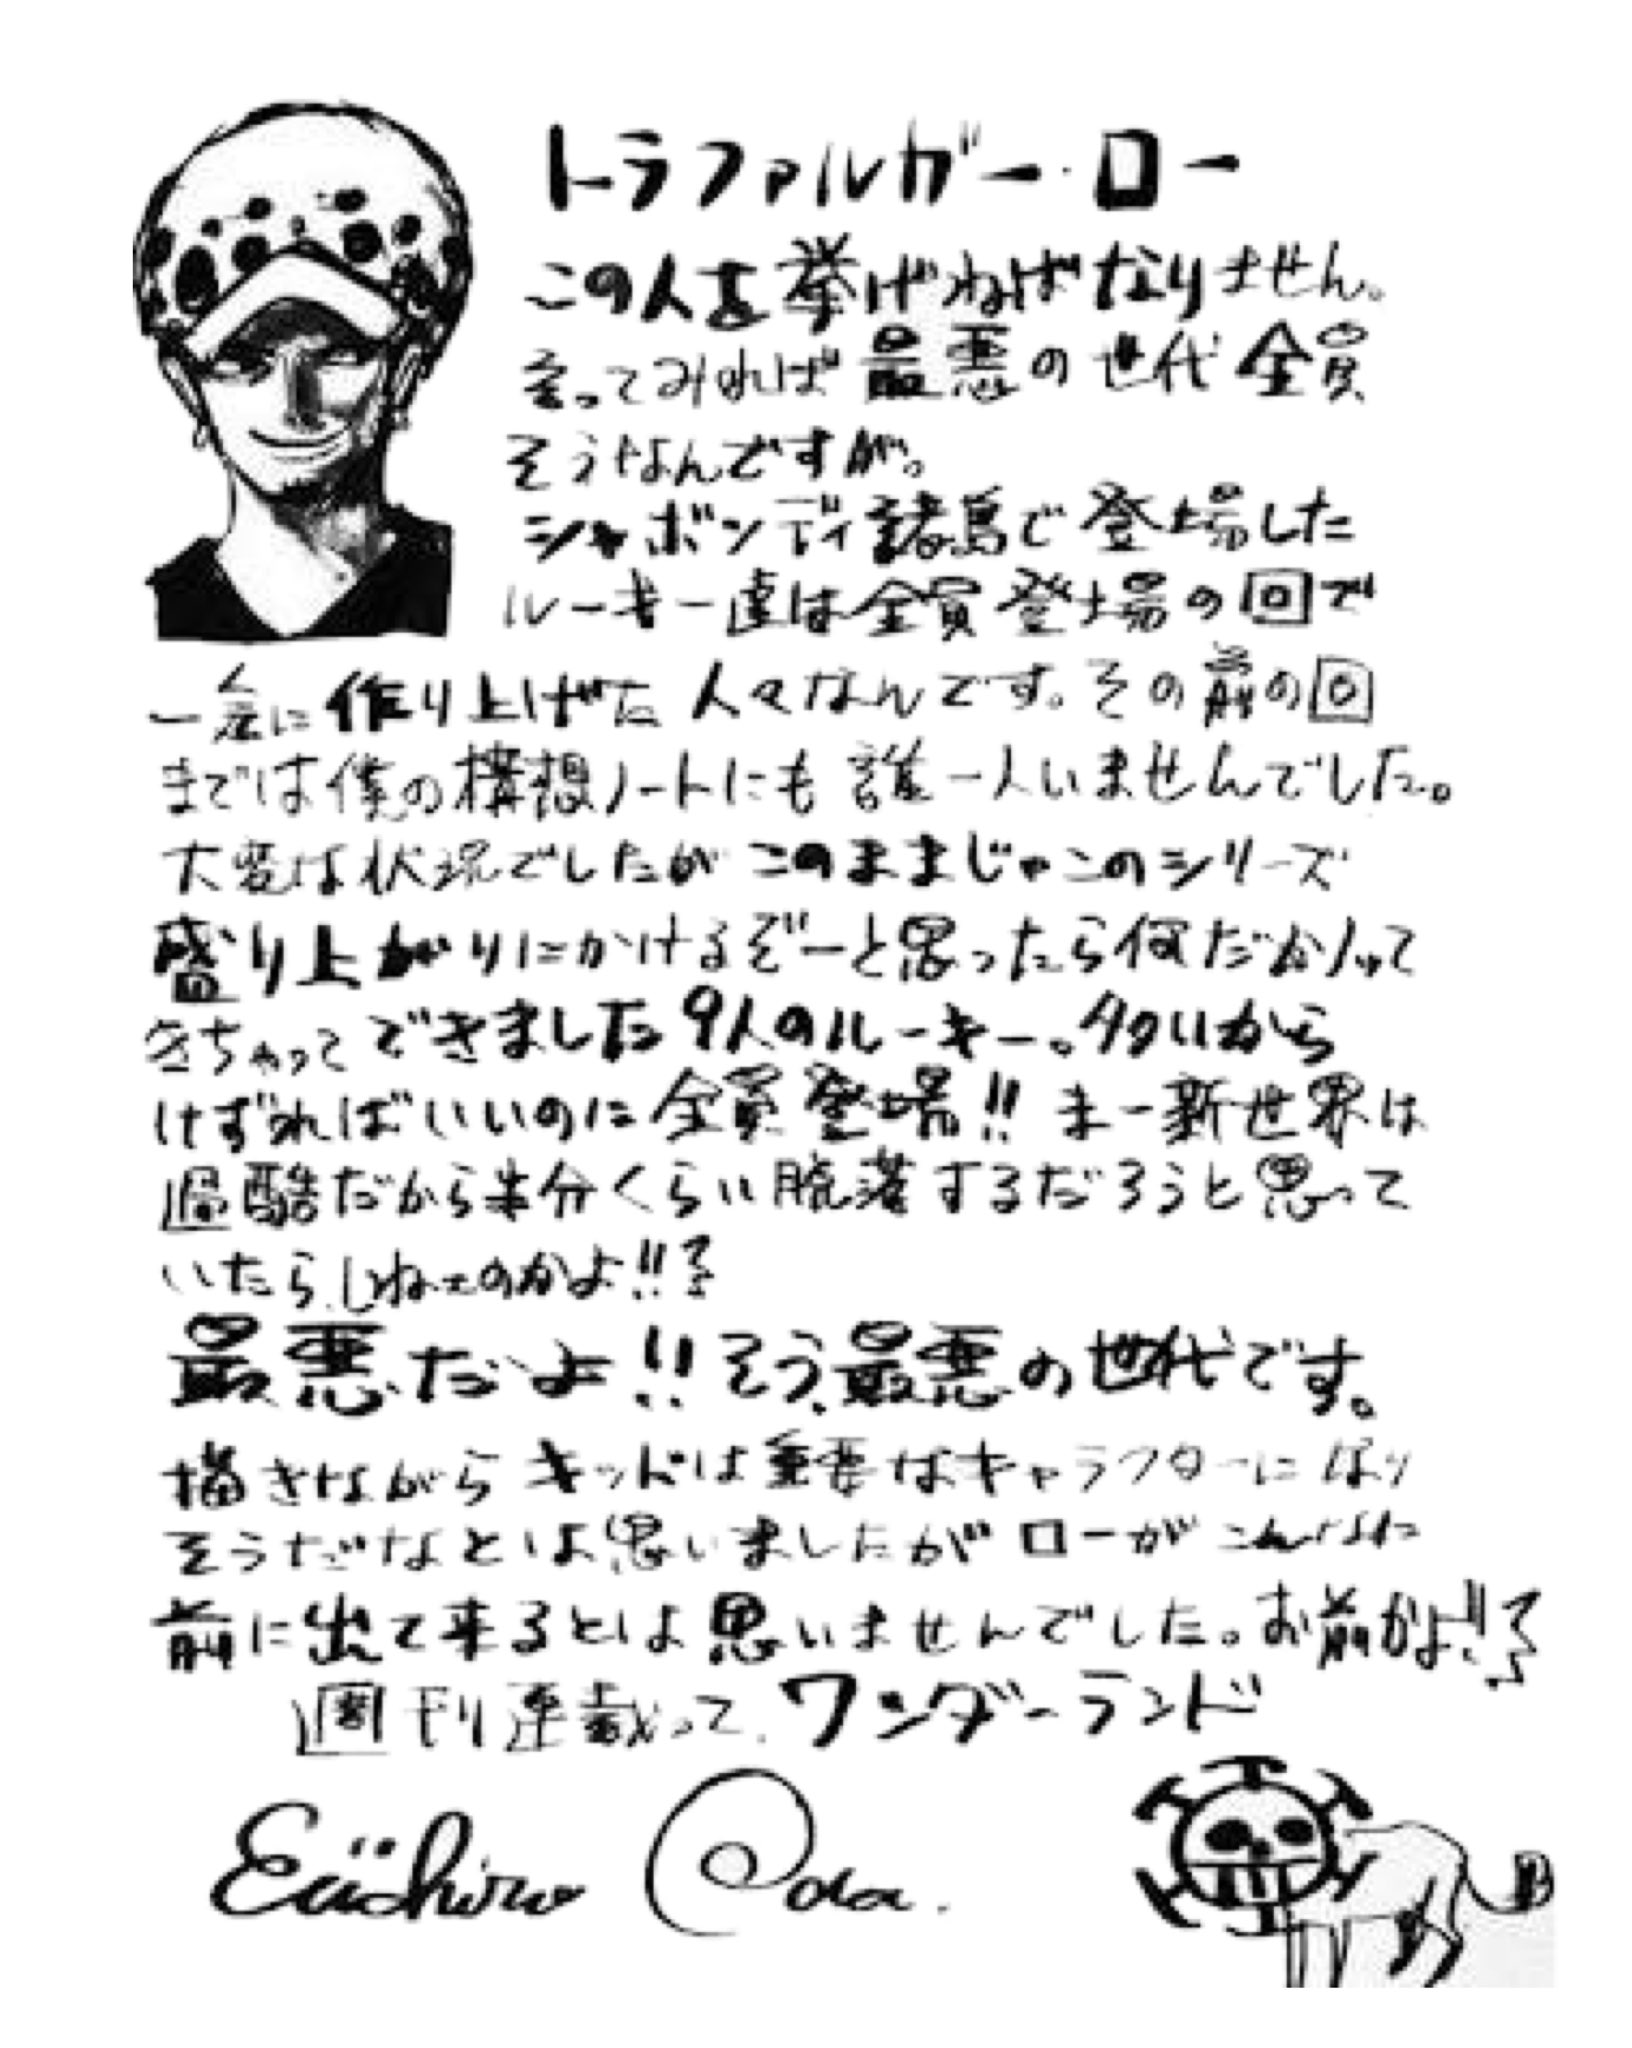 トラファルガー・ロー
この人を挙げねばなりません。
言ってみれば最悪の世代全員
そうなんですが。
シャボンディ諸島で登場した
ルーキー達は全員登場の回で
一気に作り上げた人々なんです。その前の回
までは僕の構想ノートにも誰一人いませんでした。
大変な状況でしたがこのままじゃこのシリーズ
盛り上がりにかけるぞーと思ったら何だかノって
きちゃってできました9人のルーキー。多いから
けずればいいのに全員登場!! まー新世界は
過酷だから半分くらい脱落するだろうと思って
いたら、しねェのかよ!!?
最悪だよ!!そう、最悪の世代です。
描きながらキッドは重要なキャラクターになり
そうだなとは思いましたがローがこんなに
前に出て来るとは思いませんでした。お前かよ!!?
週刊連載って、ワンダーランド
Eiichiro Oda.